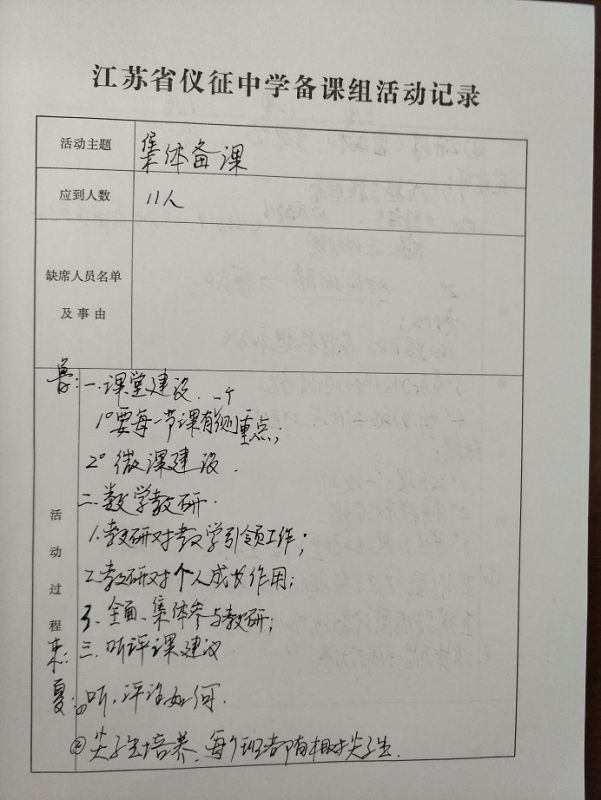 江苏省仪征中学备课组活动记录
活动主题 集体备课
应到人数 11人
缺席人员名单
及事由
鲁: 一.课堂建设.
一个
1°要每一节课有侧重点;
2°微课建设.
二.数学教研.
1.教研对教学引领工作;
2.教研对个人成长作用;
3、全面、集体参与教研;
活动过程
来: 三.听评课建议
夏: ①听、评课如何.
②尖子生培养、每个班都有相对尖子生.